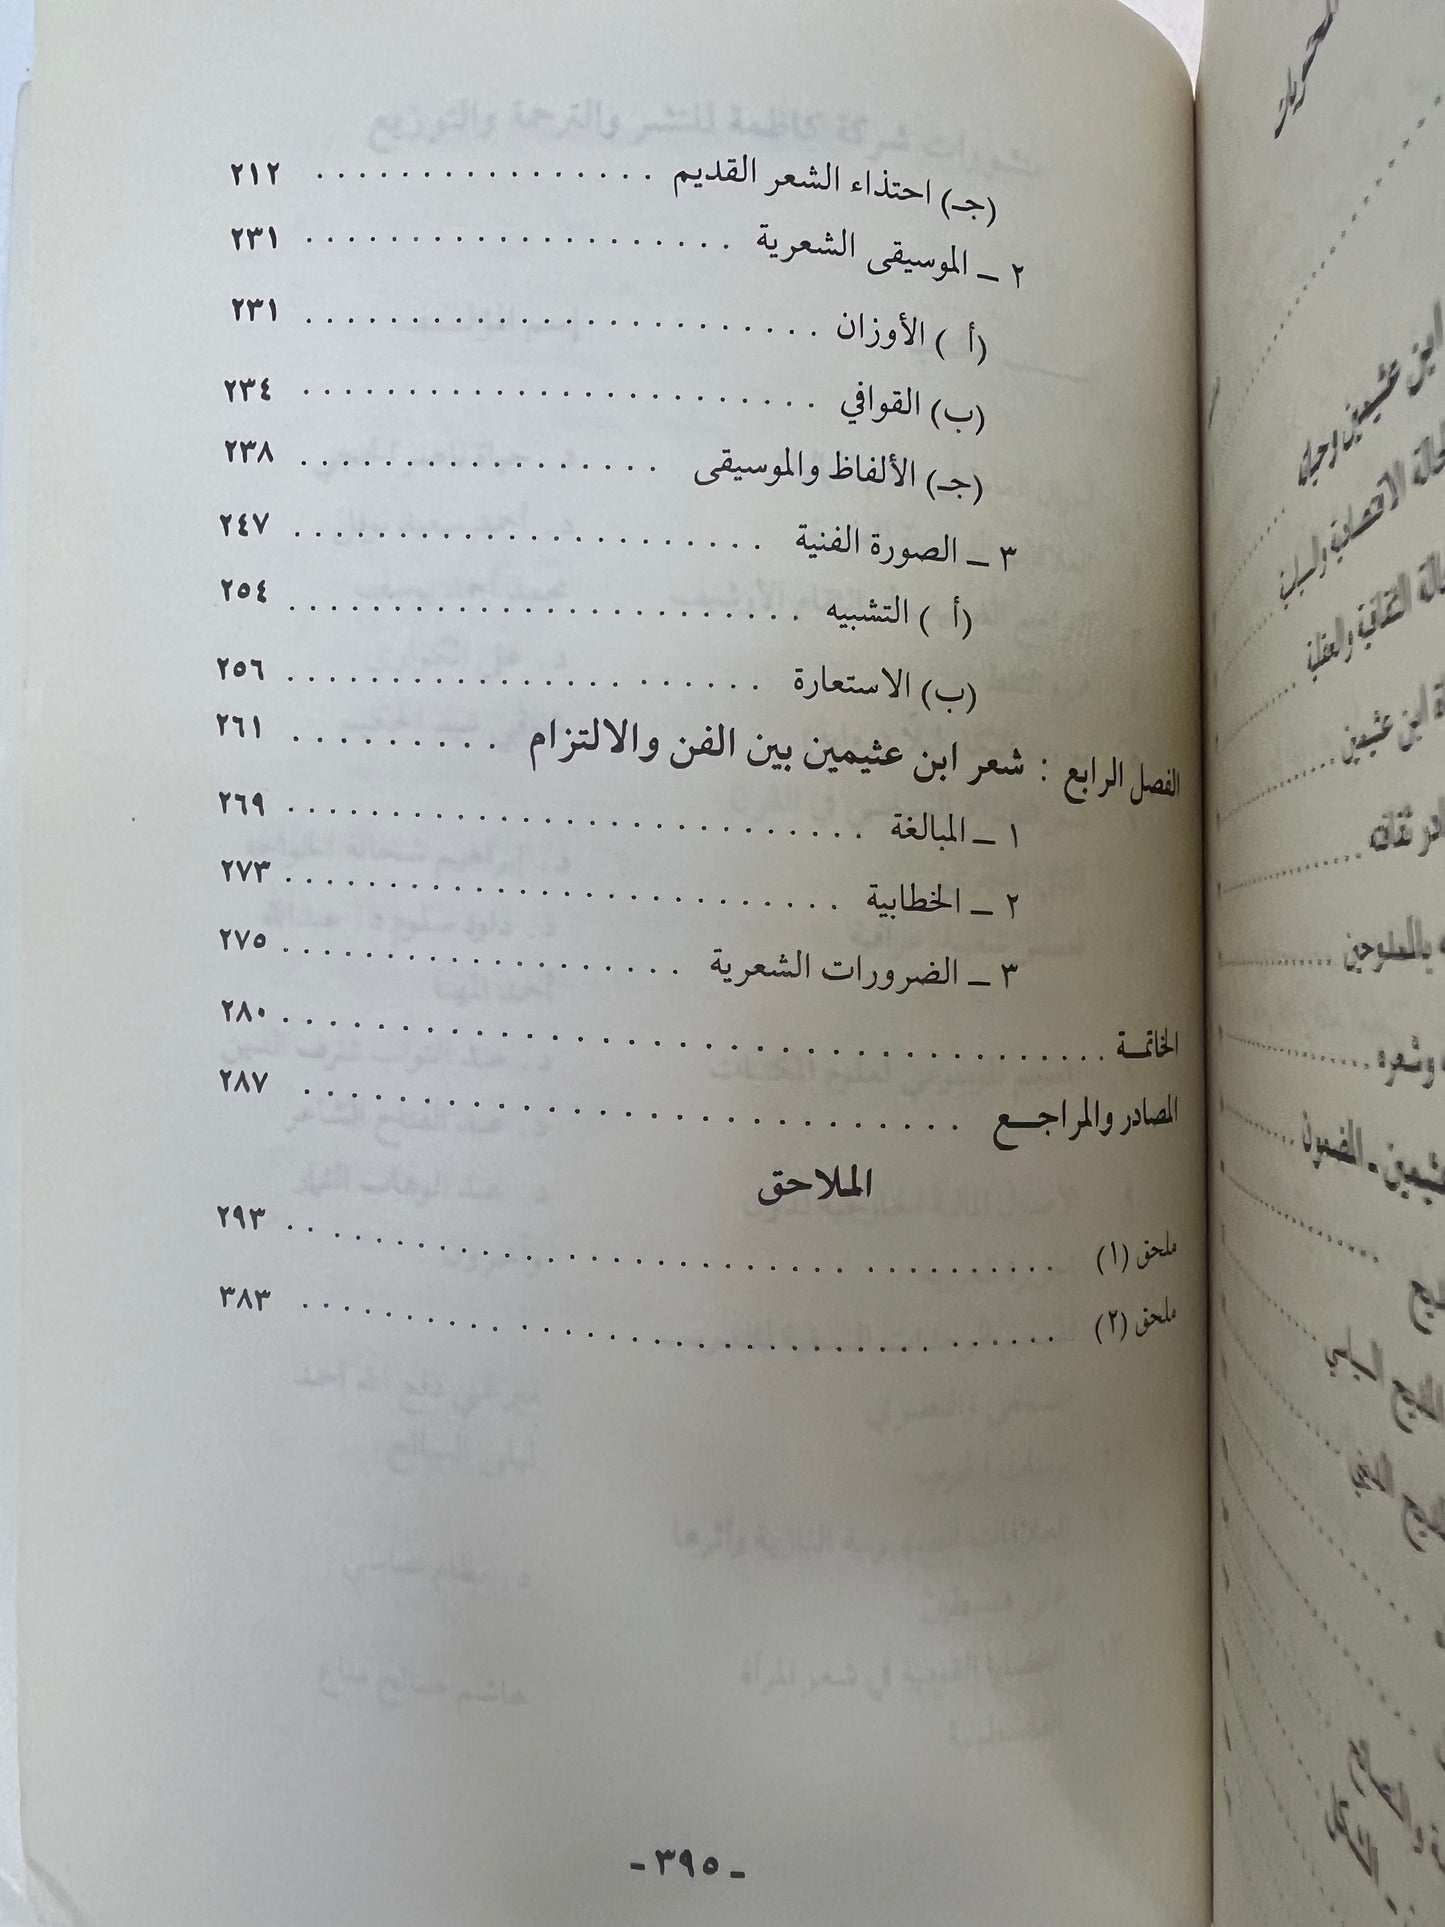 (جـ) احتذاء الشعر القديم . . . . . . . . . . . . . . . . ٢١٢
٢ ـ الموسيقى الشعرية . . . . . . . . . . . . . . . . . . ٢٣١
(أ ) الأوزان . . . . . . . . . . . . . . . . . . . . ٢٣١
(ب) القوافي . . . . . . . . . . . . . . . . . . . . ٢٣٤
(جـ) الألفاظ والموسيقى . . . . . . . . . . . . . . ٢٣٨
٣ ـ الصورة الفنية . . . . . . . . . . . . . . . . . . . . ٢٤٧
(أ ) التشبيه . . . . . . . . . . . . . . . . . . . . . ٢٥٤
(ب) الاستعارة . . . . . . . . . . . . . . . . . . . . ٢٥٦
الفصل الرابع : شعر ابن عثيمين بين الفن والالتزام . . . . . . . . . ٢٦١
١ ـ المبالغة . . . . . . . . . . . . . . . . . . . . . . . . ٢٦٩
٢ ـ الخطابية . . . . . . . . . . . . . . . . . . . . . . . ٢٧٣
٣ ـ الضرورات الشعرية . . . . . . . . . . . . . . . . . ٢٧٥
الخاتمـــة . . . . . . . . . . . . . . . . . . . . . . . . . . . . ٢٨٠
المصادر والمراجـــع . . . . . . . . . . . . . . . . . . . . . . . ٢٨٧
الملاحق
ملحق (١) . . . . . . . . . . . . . . . . . . . . . . . . . . . ٢٩٣
ملحق (٢) . . . . . . . . . . . . . . . . . . . . . . . . . . . ٣٨٣
- ٣٩٥ -
ابن عثيمين وحياته
الاقتصادية والسياسية
الثقافية والعقلية
ابن عثيمين
وشعره